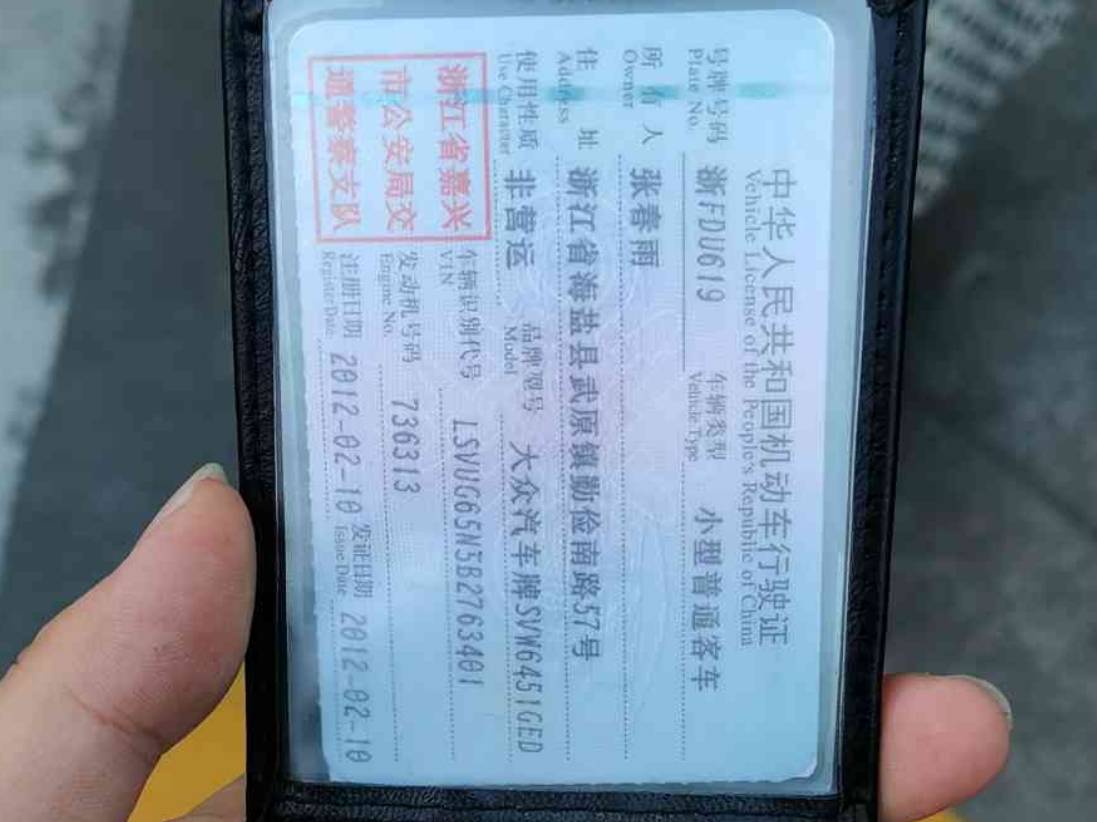 中华人民共和国机动车行驶证
Vehicle License of the People's Republic of China
号牌号码 浙FDU619 车辆类型 小型普通客车
Plate No. Vehicle Type
所有人 张春雨
Owner
住址 浙江省海盐县武原镇勤俭南路57号
Address
使用性质 非营运 品牌型号 大众汽车牌SVW6451GED
Use Character Model
浙江省嘉兴
市公安局交
通警察支队
车辆识别代号 LSVUG65N5B2763401
VIN
发动机号码 736313
Engine No.
注册日期 2012-02-10 发证日期 2012-02-10
Register Date Issue Date